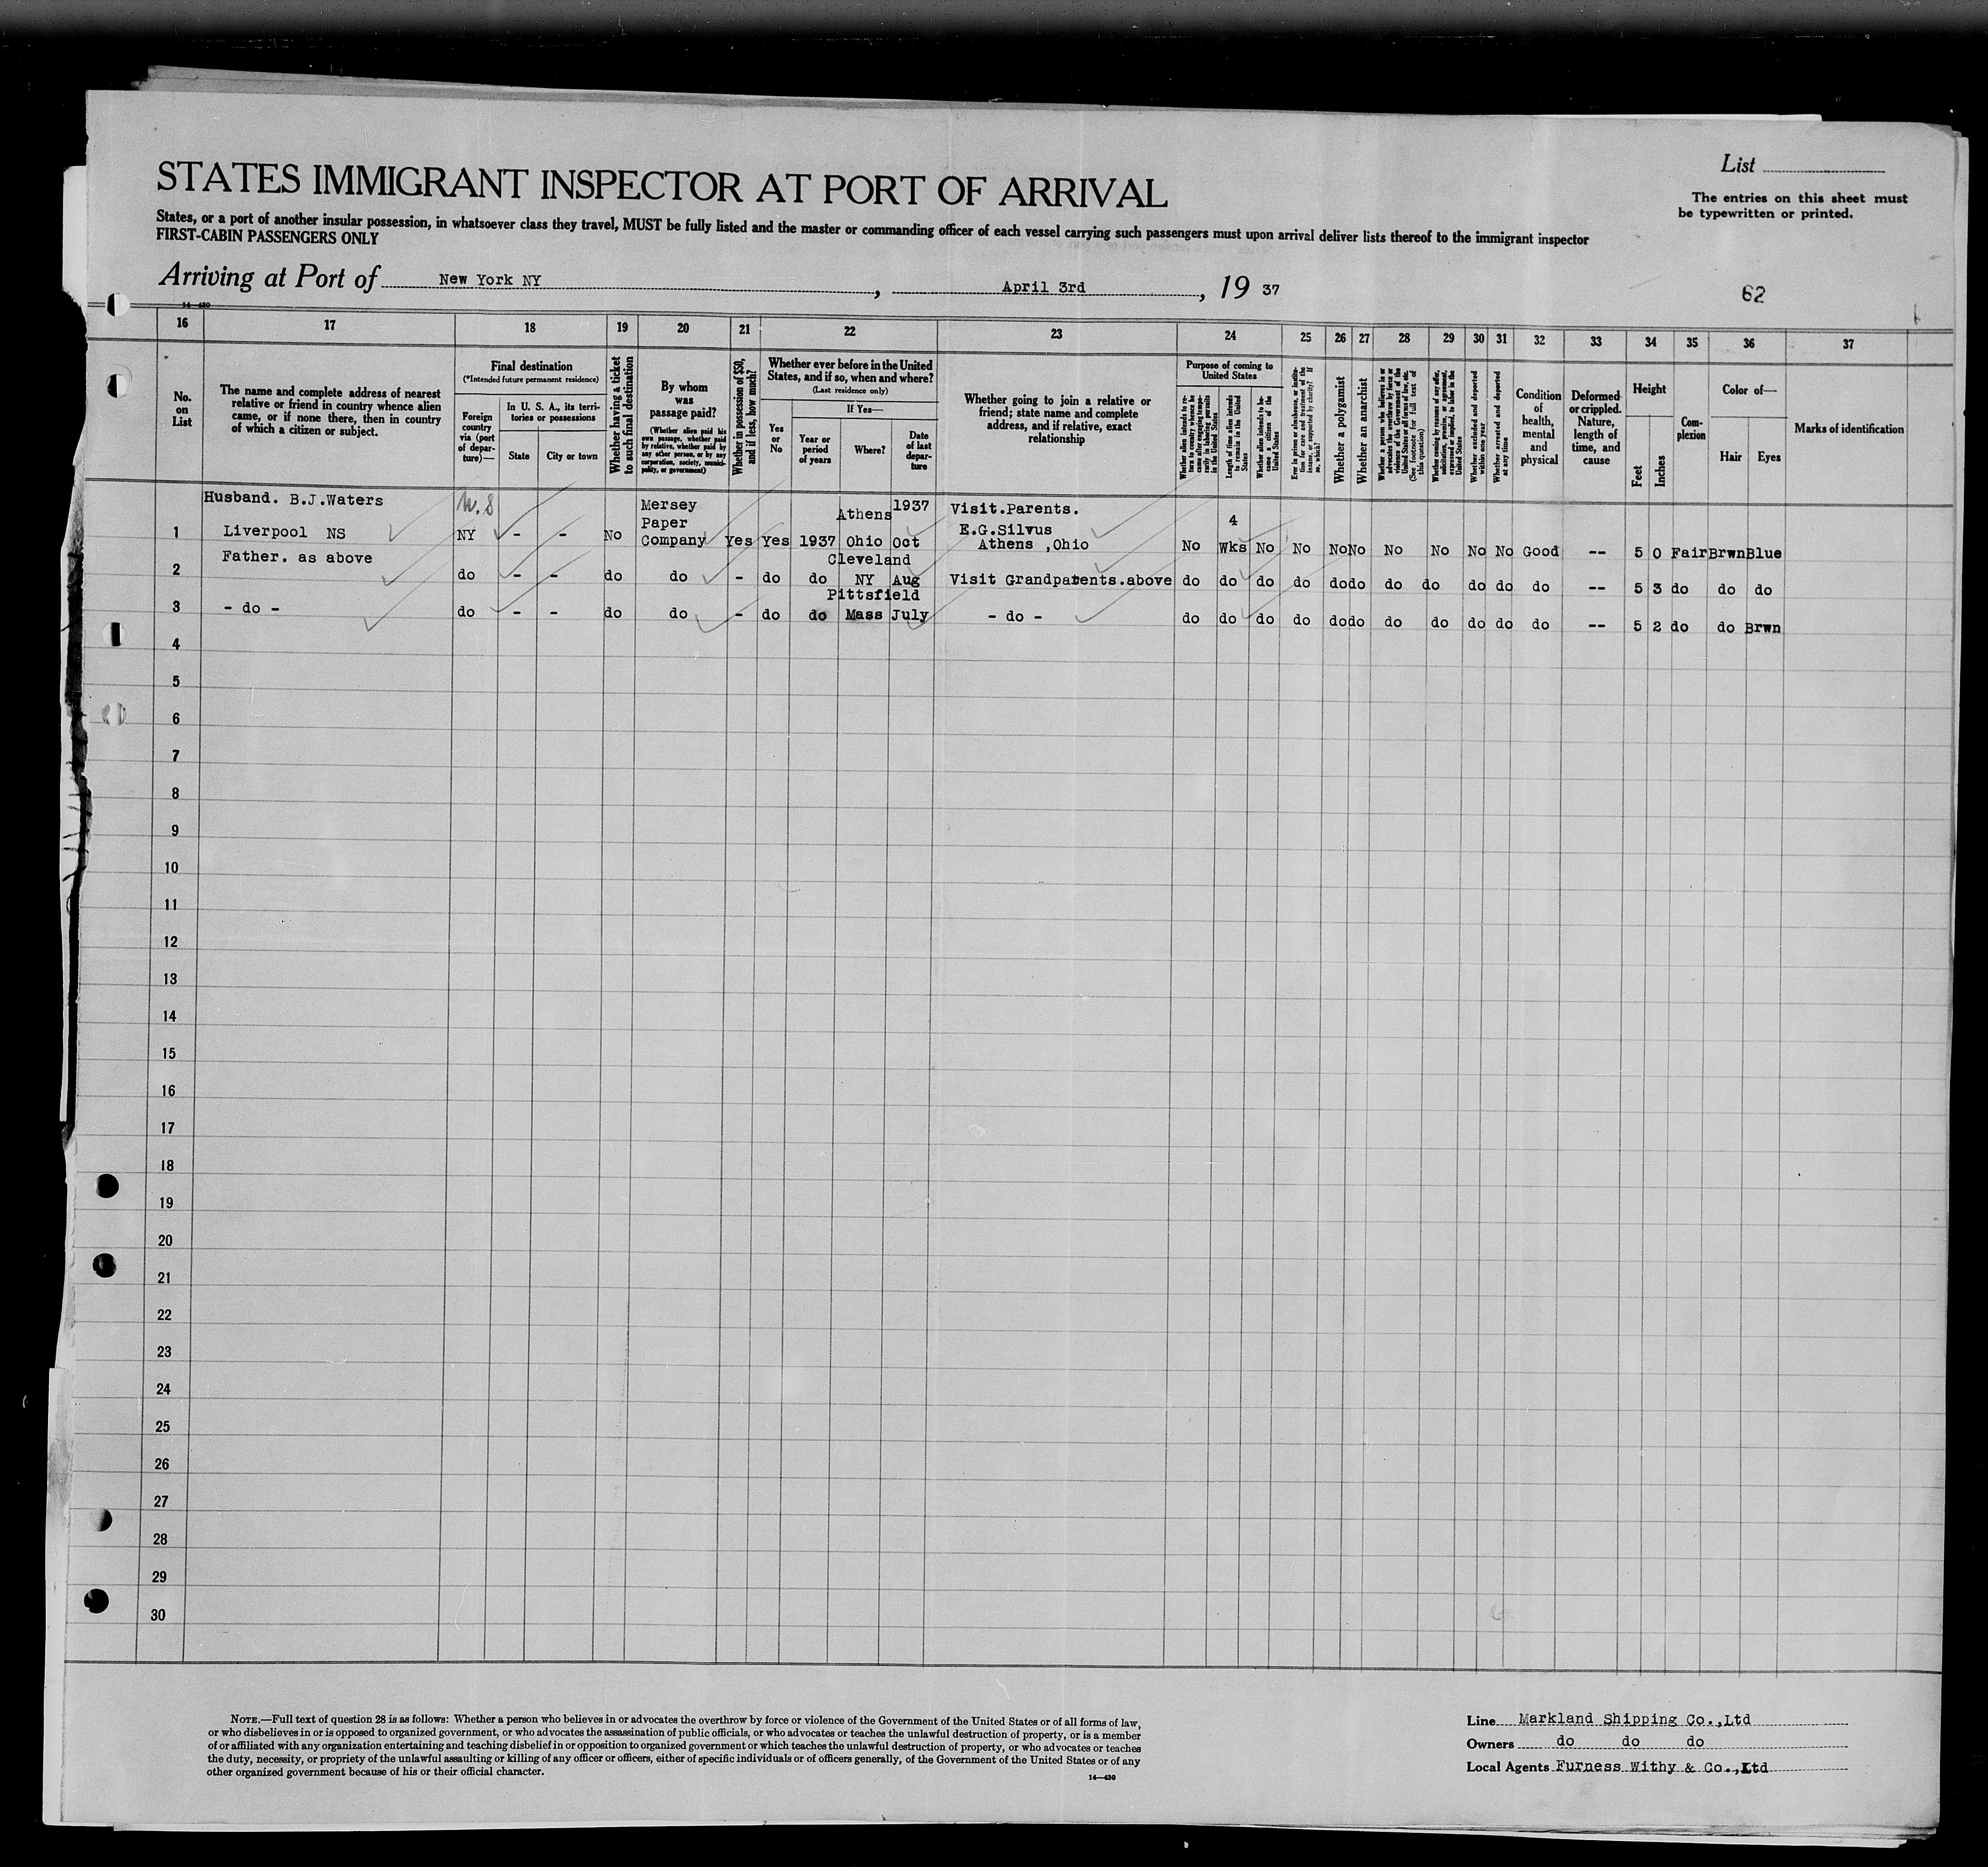 List
The entries on this sheet must
be typewritten or printed.
STATES IMMIGRANT INSPECTOR AT PORT OF ARRIVAL
States, or a port of another insular possession, in whatsoever class they travel, MUST be fully listed and the master or commanding officer of each vessel carrying such passengers must upon arrival deliver lists thereof to the immigrant inspector
FIRST-CABIN PASSENGERS ONLY
Arriving at Port of New York NY, April 3rd, 19 37
62
14—430
16 17 18 19 20 21 22 23 24 25 26 27 28 29 30 31 32 33 34 35 36 37
No.
on
List
The name and complete address of nearest
relative or friend in country whence alien
came, or if none there, then in country
of which a citizen or subject.
Final destination
(*Intended future permanent residence)
Foreign
country
via (port
of depar-
ture)—
In U. S. A., its terri-
tories or possessions
State
City or town
Whether having a ticket
to such final destination
By whom
was
passage paid?
(Whether alien paid his
own passage, whether paid
by relative, whether paid by
any other person, or by any
corporation, society, munici-
pality, or government)
Whether in possession of $50,
and if less, how much?
Whether ever before in the United
States, and if so, when and where?
(Last residence only)
Yes
or
No
If Yes—
Year or
period
of years
Where?
Date
of last
depar-
ture
Whether going to join a relative or
friend; state name and complete
address, and if relative, exact
relationship
Purpose of coming to
United States
Whether alien intends to re-
turn to country whence he
came after engaging tempo-
rarily in laboring pursuits
in the United States
Length of time alien intends
to remain in the United
States
Whether alien intends to be-
come a citizen of the
United States
Ever in prison or almshouse, or institu-
tion for care and treatment of the
insane, or supported by charity? If
so, which?
Whether a polygamist
Whether an anarchist
Whether a person who believes in or
advocates the overthrow by force or
violence of the Government of the
United States or all forms of law, etc.
(See footnote for full text of
this question)
Whether coming by reasons of any offer,
solicitation, promise, or agreement,
expressed or implied, to labor in the
United States
Whether excluded and deported
within one year
Whether arrested and deported
at any time
Condition
of
health,
mental
and
physical
Deformed
or crippled.
Nature,
length of
time, and
cause
Height
Feet
Inches
Com-
plexion
Color of—
Hair
Eyes
Marks of identification
Husband. B.J.Waters Mersey 1937 Visit.Parents.
Paper Athens E.G.Silvus 4
1 Liverpool NS NY - - No Company Yes Yes 1937 Ohio Oct Athens ,Ohio No Wks No No No No No No No No Good -- 5 0 Fair Brwn Blue
Father. as above Cleveland
2 do - - do do - do do NY Aug Visit Grandparents.above do do do do do do do do do do do -- 5 3 do do do
Pittsfield
3 - do - do - - do do - do do Mass July - do - do do do do do do do do do do do -- 5 2 do do Brwn
4
5
6
7
8
9
10
11
12
13
14
15
16
17
18
19
20
21
22
23
24
25
26
27
28
29
30
NOTE.—Full text of question 28 is as follows: Whether a person who believes in or advocates the overthrow by force or violence of the Government of the United States or of all forms of law,
or who disbelieves in or is opposed to organized government, or who advocates the assassination of public officials, or who advocates or teaches the unlawful destruction of property, or is a member
of or affiliated with any organization entertaining and teaching disbelief in or opposition to organized government or which teaches the unlawful destruction of property, or who advocates or teaches
the duty, necessity, or propriety of the unlawful assaulting or killing of any officer or officers, either of specific individuals or of officers generally, of the Government of the United States or of any
other organized government because of his or their official character.
14—430
Line Markland Shipping Co.,Ltd
Owners do do do
Local Agents Furness Withy & Co.,Ltd